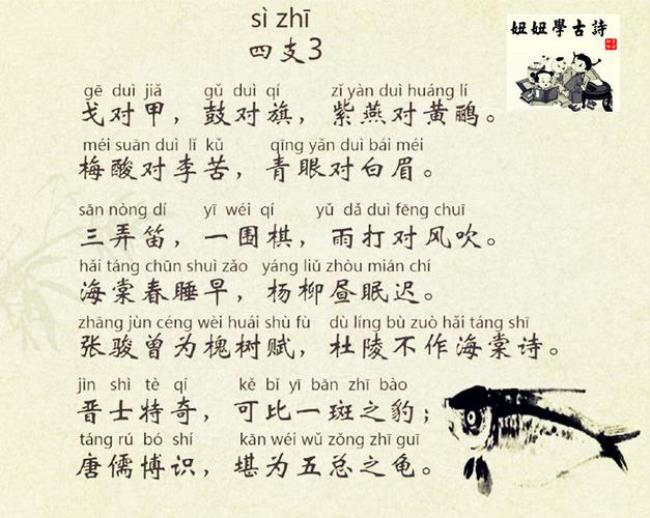 sì zhī
四支3
妞妞學古詩
gē duì jiǎ gǔ duì qí zǐ yàn duì huáng lí
戈对甲，鼓对旗，紫燕对黄鹂。
méi suān duì lǐ kǔ qīng yǎn duì bái méi
梅酸对李苦，青眼对白眉。
sān nòng dí yī wéi qí yǔ dǎ duì fēng chuī
三弄笛，一围棋，雨打对风吹。
hǎi táng chūn shuì zǎo yáng liǔ zhòu mián chí
海棠春睡早，杨柳昼眠迟。
zhāng jùn céng wèi huái shù fù dù líng bù zuò hǎi táng shī
张骏曾为槐树赋，杜陵不作海棠诗。
jìn shì tè qí kě bǐ yī bān zhī bào
晋士特奇，可比一斑之豹；
táng rú bó shí kān wéi wǔ zǒng zhī guī
唐儒博识，堪为五总之龟。